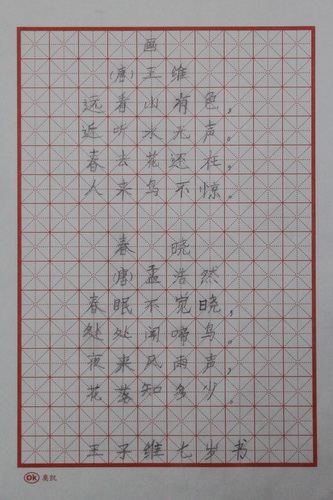 画
(唐)王维
远看山有色，
近听水无声。
春去花还在，
人来鸟不惊。
春晓
(唐)孟浩然
春眠不觉晓，
处处闻啼鸟。
夜来风雨声，
花落知多少。
王子维七岁书
OK 奥凯